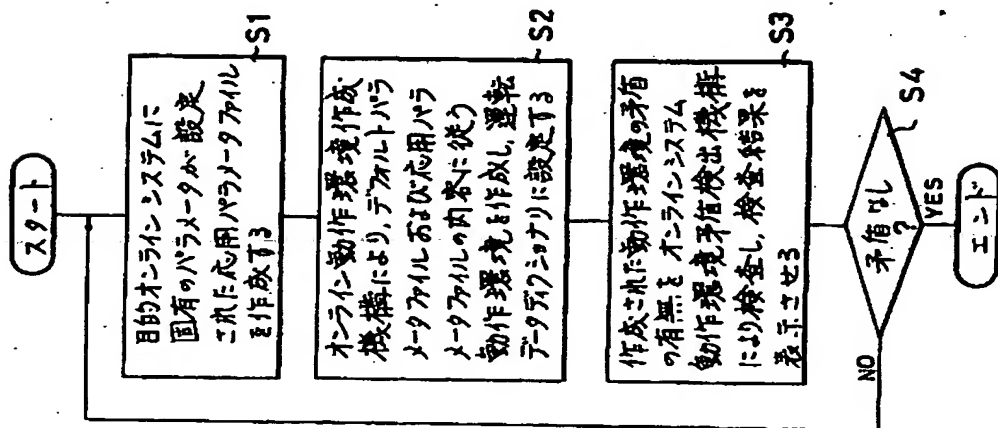 スタート
目的オンラインシステムに
固有のパラメータが設定
された応用パラメータファイル
を作成する
S1
オンライン動作環境作成
機構により,デフォルトパラ
メータファイルおよび応用パラ
メータファイルの内容に従う
動作環境を作成し,運転
データディクショナリに設定する
S2
作成された動作環境の矛盾
の有無をオンラインシステム
動作環境矛盾検出機構
により検査し,検査結果を
表示させる
S3
矛盾なし
?
S4
NO
YES
エンド